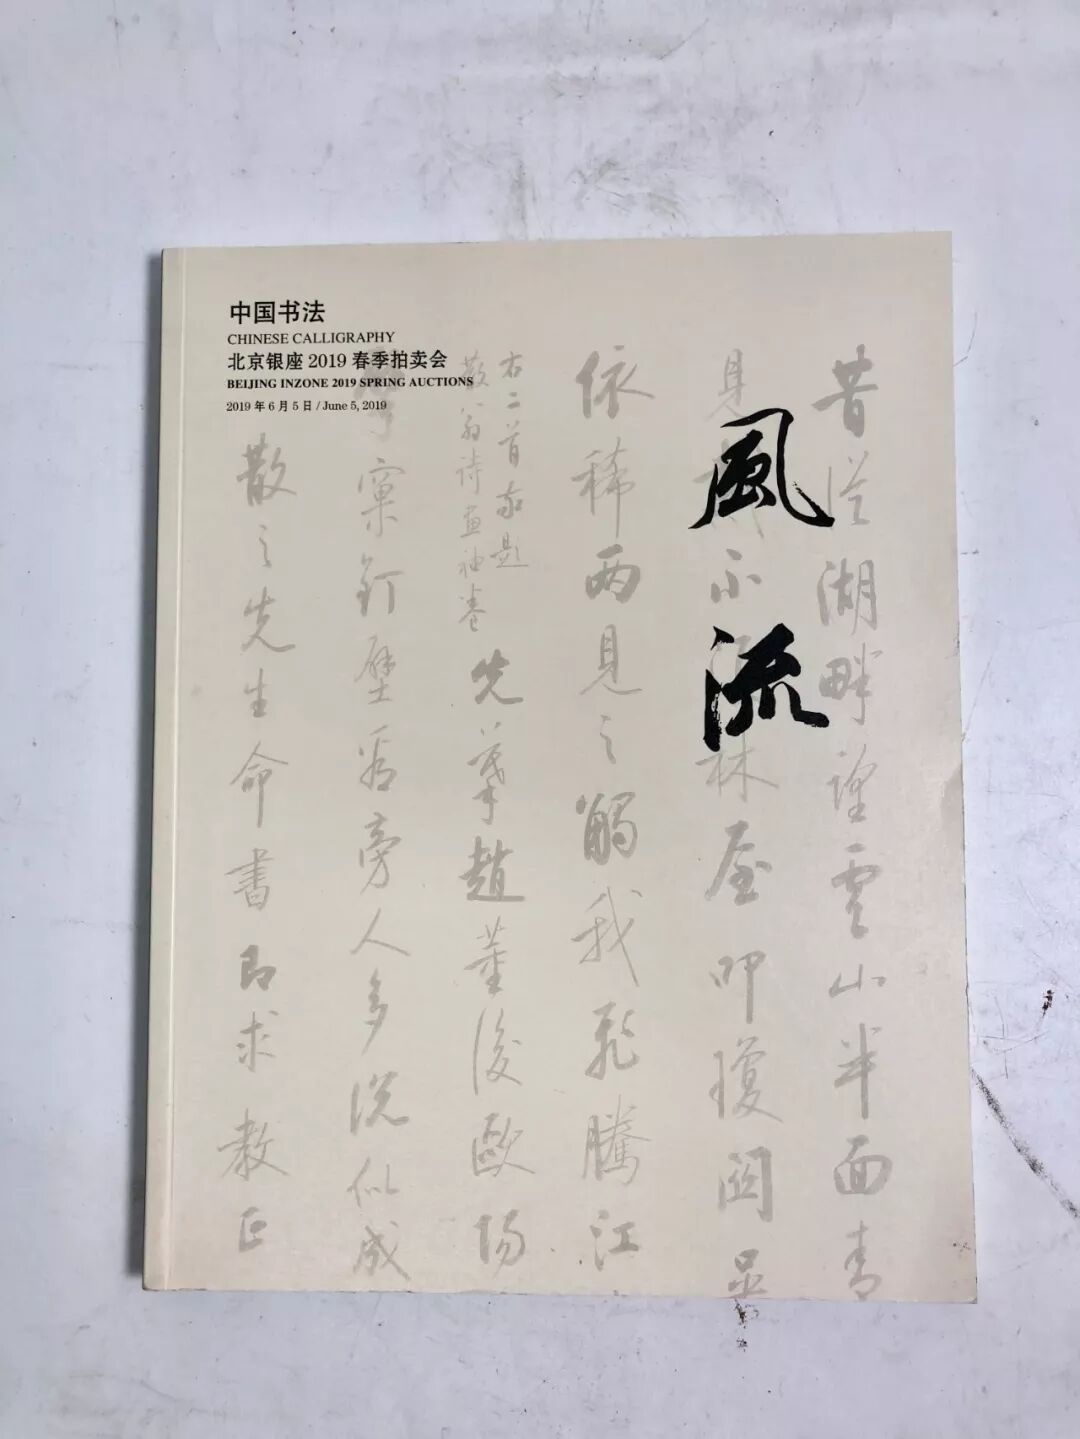 中国书法
CHINESE CALLIGRAPHY
北京银座 2019 春季拍卖会
BEIJING INZONE 2019 SPRING AUCTIONS
2019 年 6 月 5 日 / June 5, 2019
風流
昔從湖畔望雲山半面青
見
不
林屋叩瓊闕
依稀两見之觸我飛騰江
右二首敬題
散翁诗画袖卷
先
趙董後歐陽
稾釘壁看旁人多说似成
散之先生命書即求教正